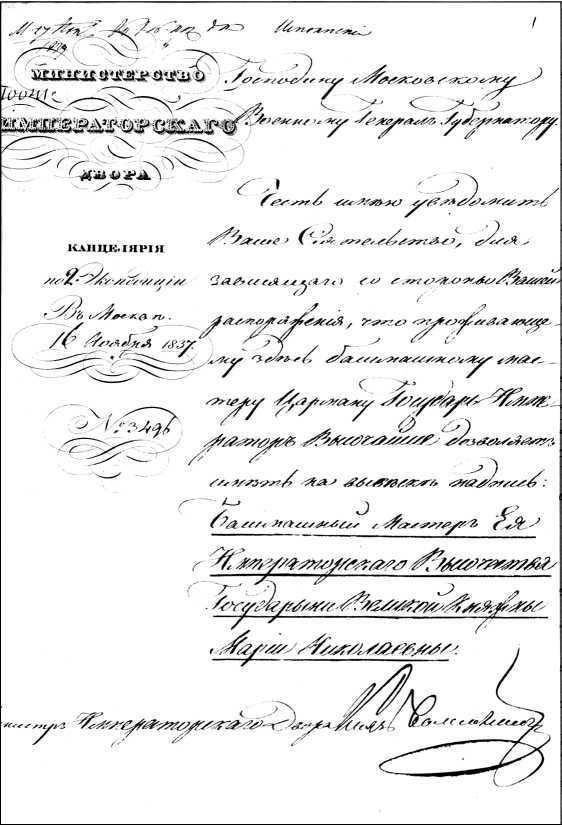 1
МИНИСТЕРСТВО
ИМПЕРАТОРСКАГО
ДВОРА
КАНЦЕЛЯРІЯ
по 2. Экспедиціи
Въ Москвѣ.
16 Ноября 1837.
№ 3496
Господину Московскому
Военному Генералъ Губернатору.
Честь имѣю увѣдомить
Ваше Сіятельство, для
зависящаго со стороны Вашей
распоряженія, что проживающе-
му здѣсь башмашному мас-
теру Царману Государь Импе-
раторъ Высочайше дозволяетъ
имѣть на вывескѣ надпись:
Башмашный Мастеръ Ея
Императорскаго Высочества
Государыни Великой Княжны
Маріи Николаевны.
Министръ Императорскаго Двора Князь